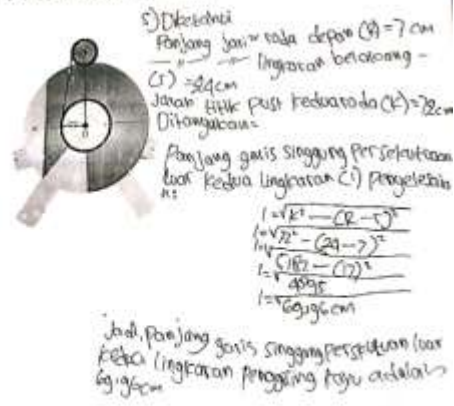 5) Diketahui
Panjang jari² roda depan (R) = 7 cm
—〃— —〃— lingkaran belakang -
(r) = 24cm
Jarak titik pusat kedua roda (k) = 72 cm
Ditanyakan =
Panjang garis singgung persekutuan
luar kedua lingkaran (l) penyelesain
l = √K² — (R - r)²
l = √72² — (24 - 7)²
l = √5182 — (17)²
l = √4895
l = 69,96 cm
Jadi, panjang garis singgung persekutuan luar
kedua lingkaran penggiling kayu adalah
69,96cm